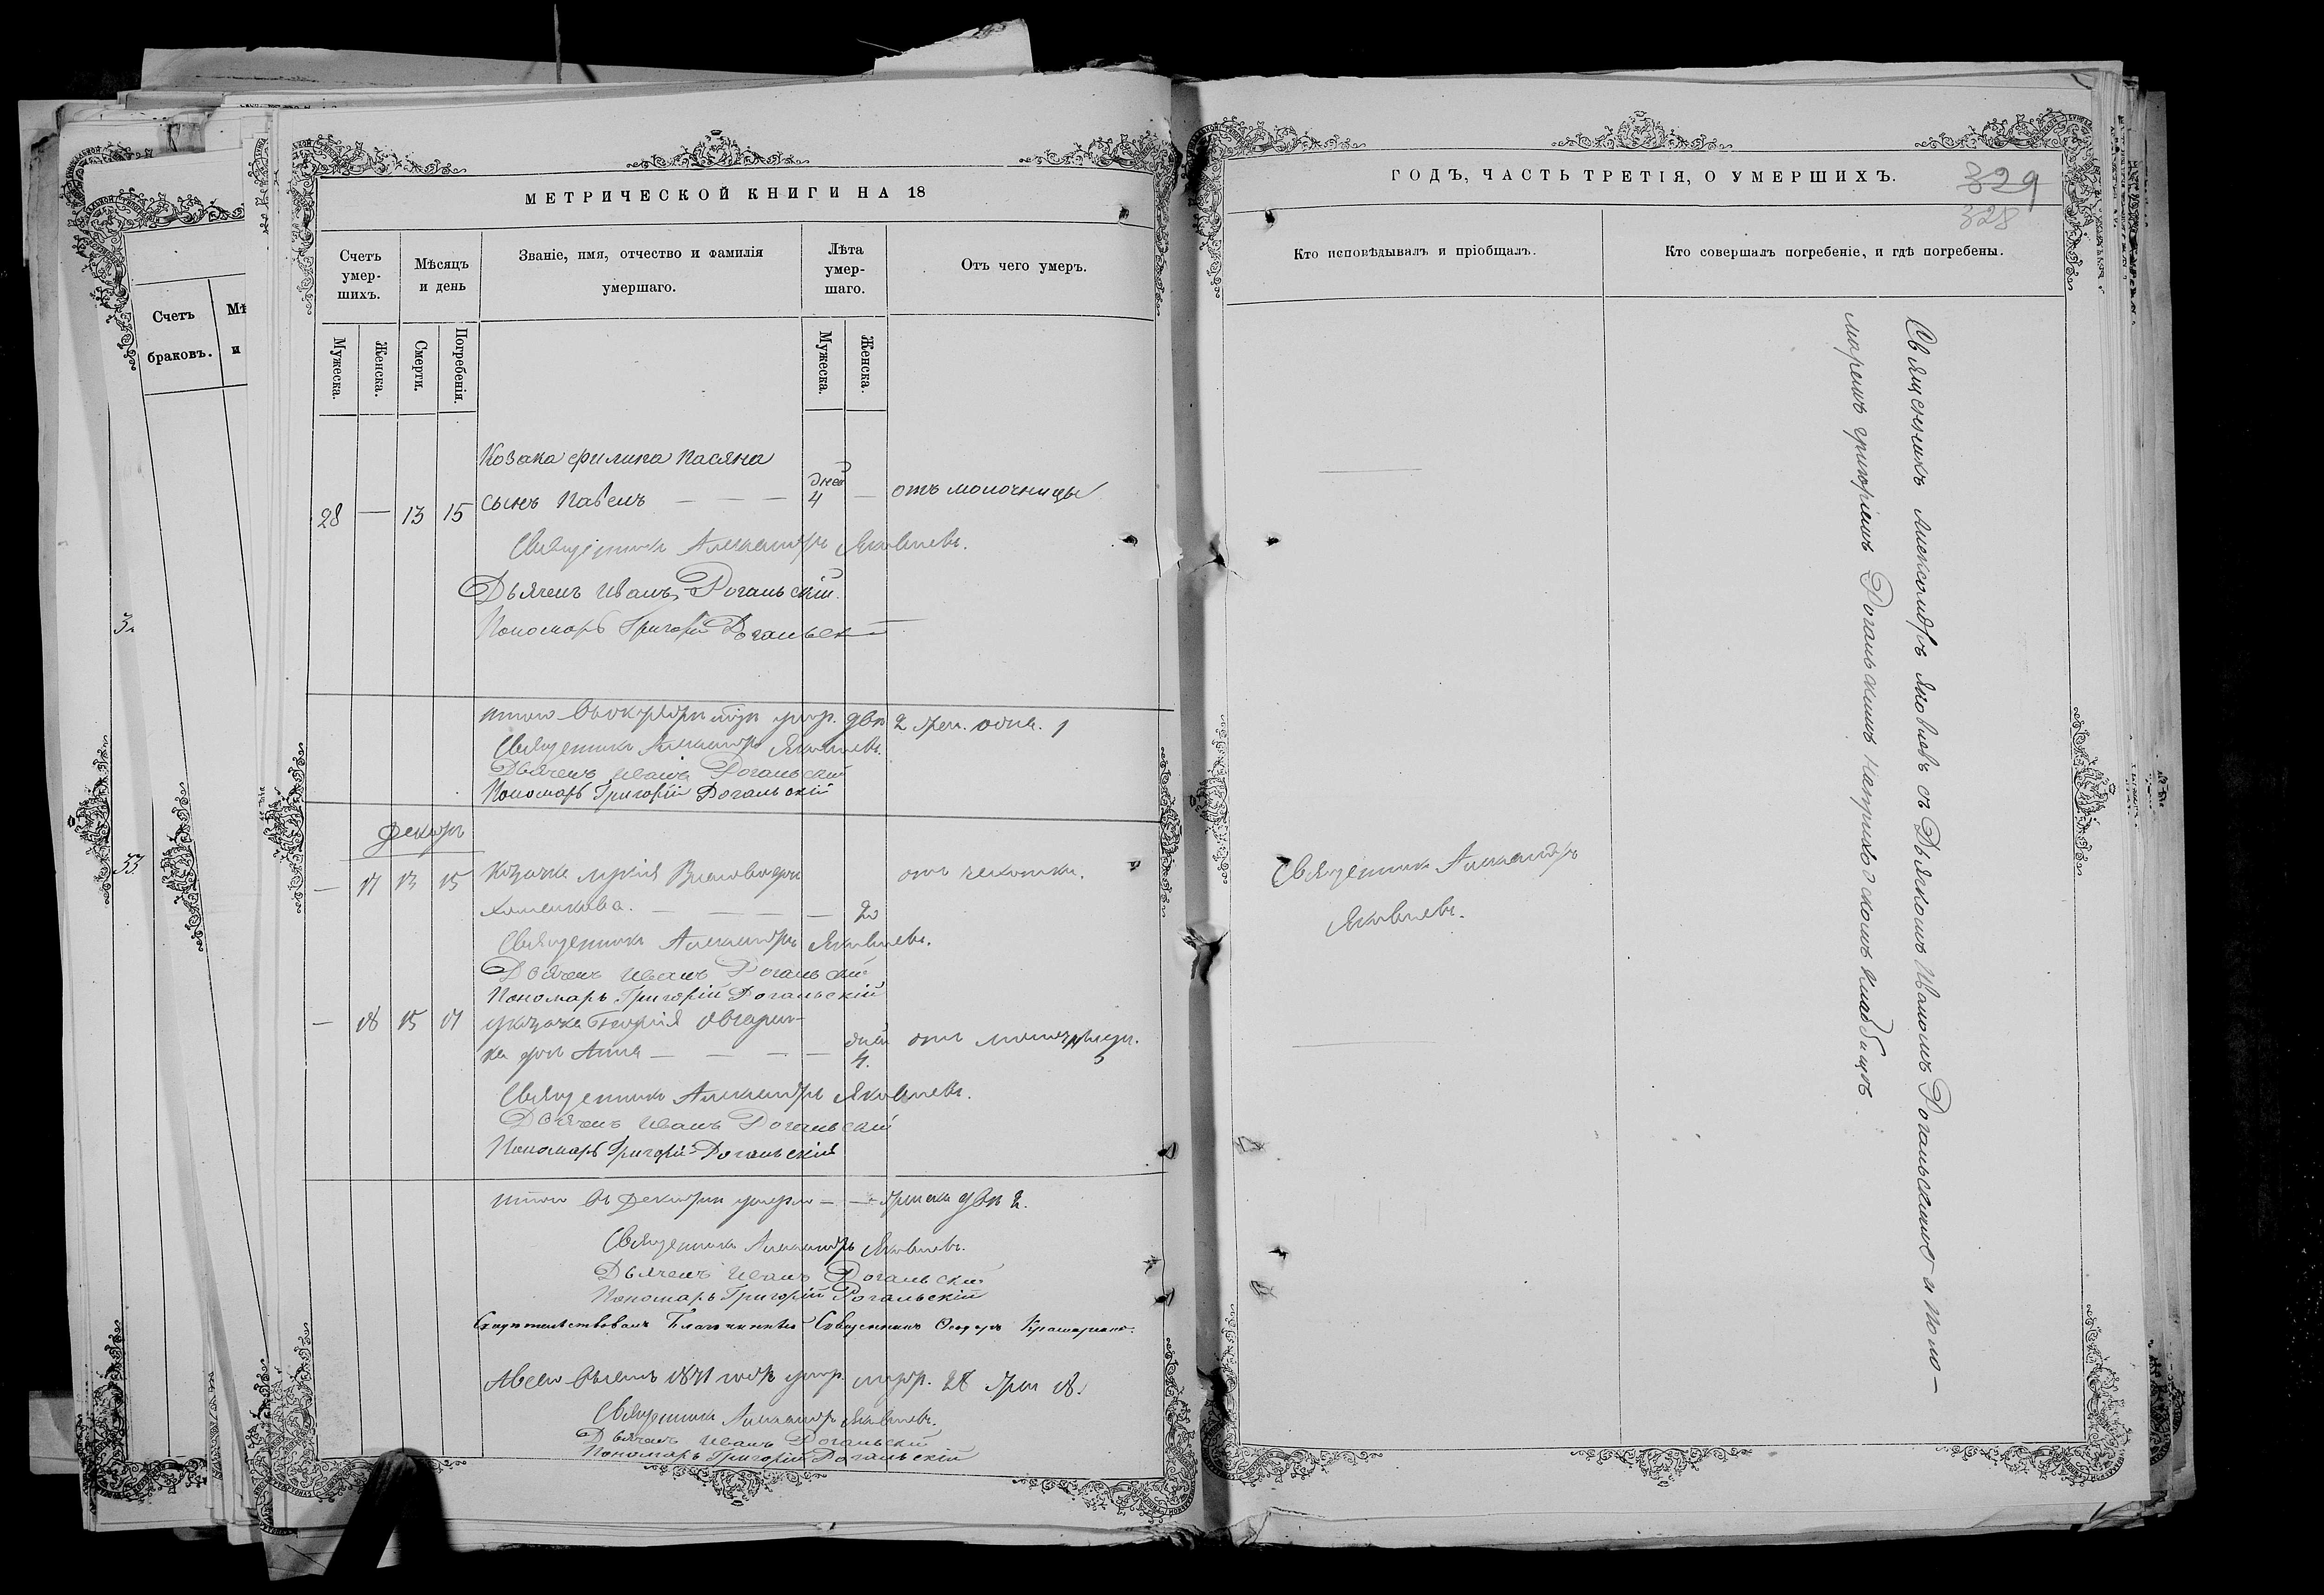 МЕТРИЧЕСКОЙ КНИГИ НА 18
Счетъ умер-шихъ.
Мѣсяцъ и день
Званіе, имя, отчество и фамилія умершаго.
Лѣта умер-шаго.
Отъ чего умеръ.
Мужеска.
Женска.
Смерти.
Погребенія.
Мужеска.
Женска.
Козака Филипа Касяна
28 — 13 15 сынъ Павелъ — — — дней 4 — отъ молочницы
Священникъ Александръ Яковлевъ.
Дьячекъ Иванъ Рогальскій.
Пономарь Григорій Рогальскій
итого умер. два 2 жен. одна. 1
Священникъ Александръ Яковлевъ.
Дьячекъ Иванъ Рогальскій
Пономарь Григорій Рогальскій
Декабрь
— 17 13 15 Козачка отъ чахотки.
— — — — 20
Священникъ Александръ Яковлевъ.
Дьячекъ Иванъ Рогальскій
Пономарь Григорій Рогальскій
— 18 15 17 у козака Георгія
ка дочь Анна — — — — дней 4. отъ молочницы.
Священникъ Александръ Яковлевъ.
Дьячекъ Иванъ Рогальскій
Пономарь Григорій Рогальскій
итого въ Декабрѣ умерло — — женска двѣ 2.
Священникъ Александръ Яковлевъ.
Дьячекъ Иванъ Рогальскій
Пономарь Григорій Рогальскій
Свидѣтельствовалъ Благочинный Священникъ Ѳеодоръ
А всего 1871 годѣ умер. муж. 28 жен 18.
Священникъ Александръ Яковлевъ.
Дьячекъ Иванъ Рогальскій
Пономарь Григорій Рогальскій
ГОДЪ, ЧАСТЬ ТРЕТІЯ, О УМЕРШИХЪ.
329
328
Кто исповѣдывалъ и пріобщалъ.
Кто совершалъ погребеніе, и гдѣ погребены.
Священникъ Александръ
Яковлевъ.
Священникъ Александръ Яковлевъ съ Дьячкомъ Иваномъ Рогальскимъ и Поно-
маремъ Григоріемъ Рогальскимъ на приходскомъ кладбищѣ.
Счетъ
браковъ.
Мѣ
и
33